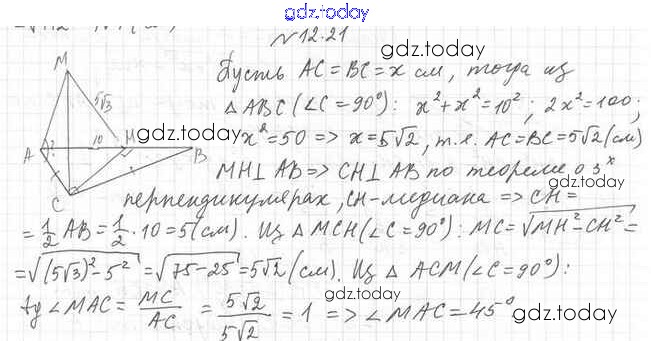 gdz.today
№12.21
gdz.today
Пусть AC=BC=x см, тогда из
△ABC(∠C=90°): x²+x²=10²; 2x²=100;
gdz.today
x²=50 => x=5√2, т.е. AC=BC=5√2(см)
MH⊥AB=>CH⊥AB по теореме о 3ˣ
gdz.today
перпендикулярах, CH-медиана => CH=
=½AB=½·10=5(см). Из △MCH(∠C=90°): MC=√(MH²-CH²)=
gdz.today
=√((5√3)²-5²)=√(75-25)=5√2(см). Из △ACM(∠C=90°):
gdz.today
tg∠MAC=MC/AC=5√2/5√2=1 => ∠MAC=45°
gdz.today
M
5√3
10
H
A
B
C